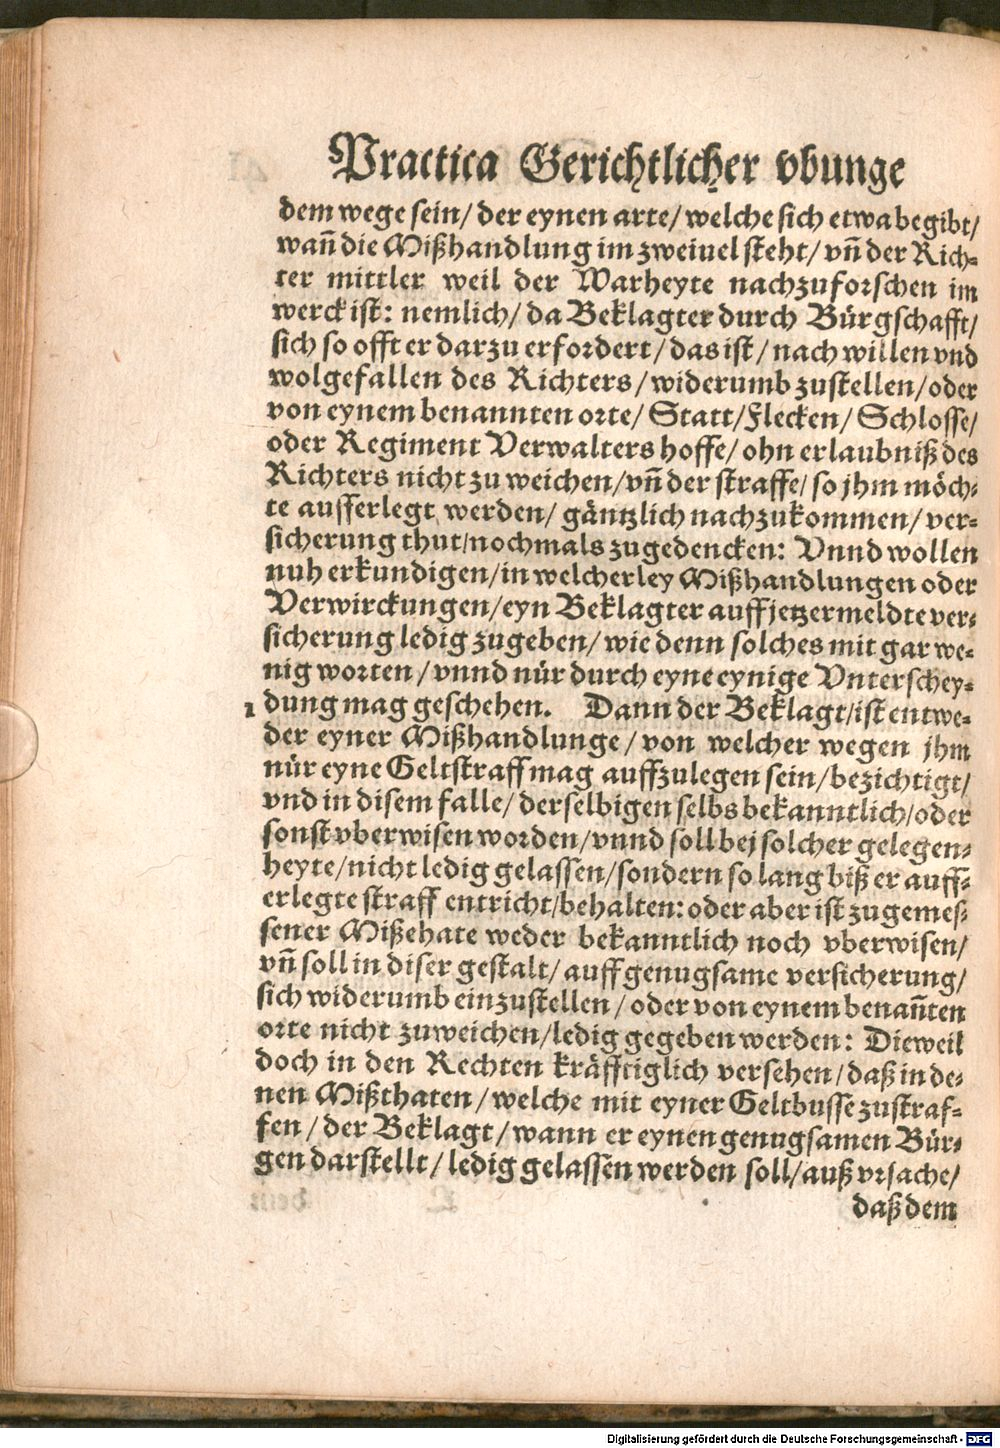 Practica Gerichtlicher vbunge
dem wege sein/ der eynen arte/ welche sich etwa begibt/
wañ die Mißhandlung im zweiuel steht/ vñ der Rich-
ter mittler weil der Warheyte nachzuforschen im
werck ist: nemlich/ da Beklagter durch Bürgschafft/
sich so offt er darzu erfordert/ das ist/ nach willen vnd
wolgefallen des Richters/ widerumb zustellen/ oder
von eynem benannten orte/ Statt/ Flecken/ Schlosse/
oder Regiment Verwalters hoffe/ ohn erlaubniß des
Richters nicht zu weichen/ vñ der straffe/ so jhm möch-
te aufferlegt werden/ gäntzlich nachzukommen/ ver-
sicherung thut/ nochmals zugedencken: Vnnd wollen
nuh erkundigen/ in welcherley Mißhandlungen oder
Verwirckungen/ eyn Beklagter auff jetzermeldte ver-
sicherung ledig zugeben/ wie denn solches mit gar we-
nig worten/ vnnd nür durch eyne eynige Vnterschey-
1 dung mag geschehen. Dann der Beklagt/ ist entwe-
der eyner Mißhandlunge/ von welcher wegen jhm
nür eyne Geltstraff mag auffzulegen sein/ bezichtigt/
vnd in disem falle/ derselbigen selbs bekanntlich/ oder
sonst vberwisen worden/ vnnd soll bej solcher gelegen-
heyte/ nicht ledig gelassen/ sondern so lang biß er auff-
erlegte straff entricht/ behalten: oder aber ist zugemes-
sener Mißehate weder bekanntlich noch vberwisen/
vñ soll in diser gestalt/ auff genugsame versicherung/
sich widerumb einzustellen/ oder von eynem benañten
orte nicht zuweichen/ ledig gegeben werden: Dieweil
doch in den Rechten kräfftiglich versehen/ daß in de-
nen Mißthaten/ welche mit eyner Geltbusse zustraf-
fen/ der Beklagt/ wann er eynen genugsamen Bür-
gen darstellt/ ledig gelassen werden soll/ auß vrsache/
daß dem
Digitalisierung gefördert durch die Deutsche Forschungsgemeinschaft - DFG